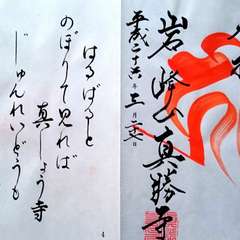 はるばると
のぼりて見れば
真しょう寺
じゅんれいどうも
4
岩峰山真勝寺
平成二十六年三月二十七日